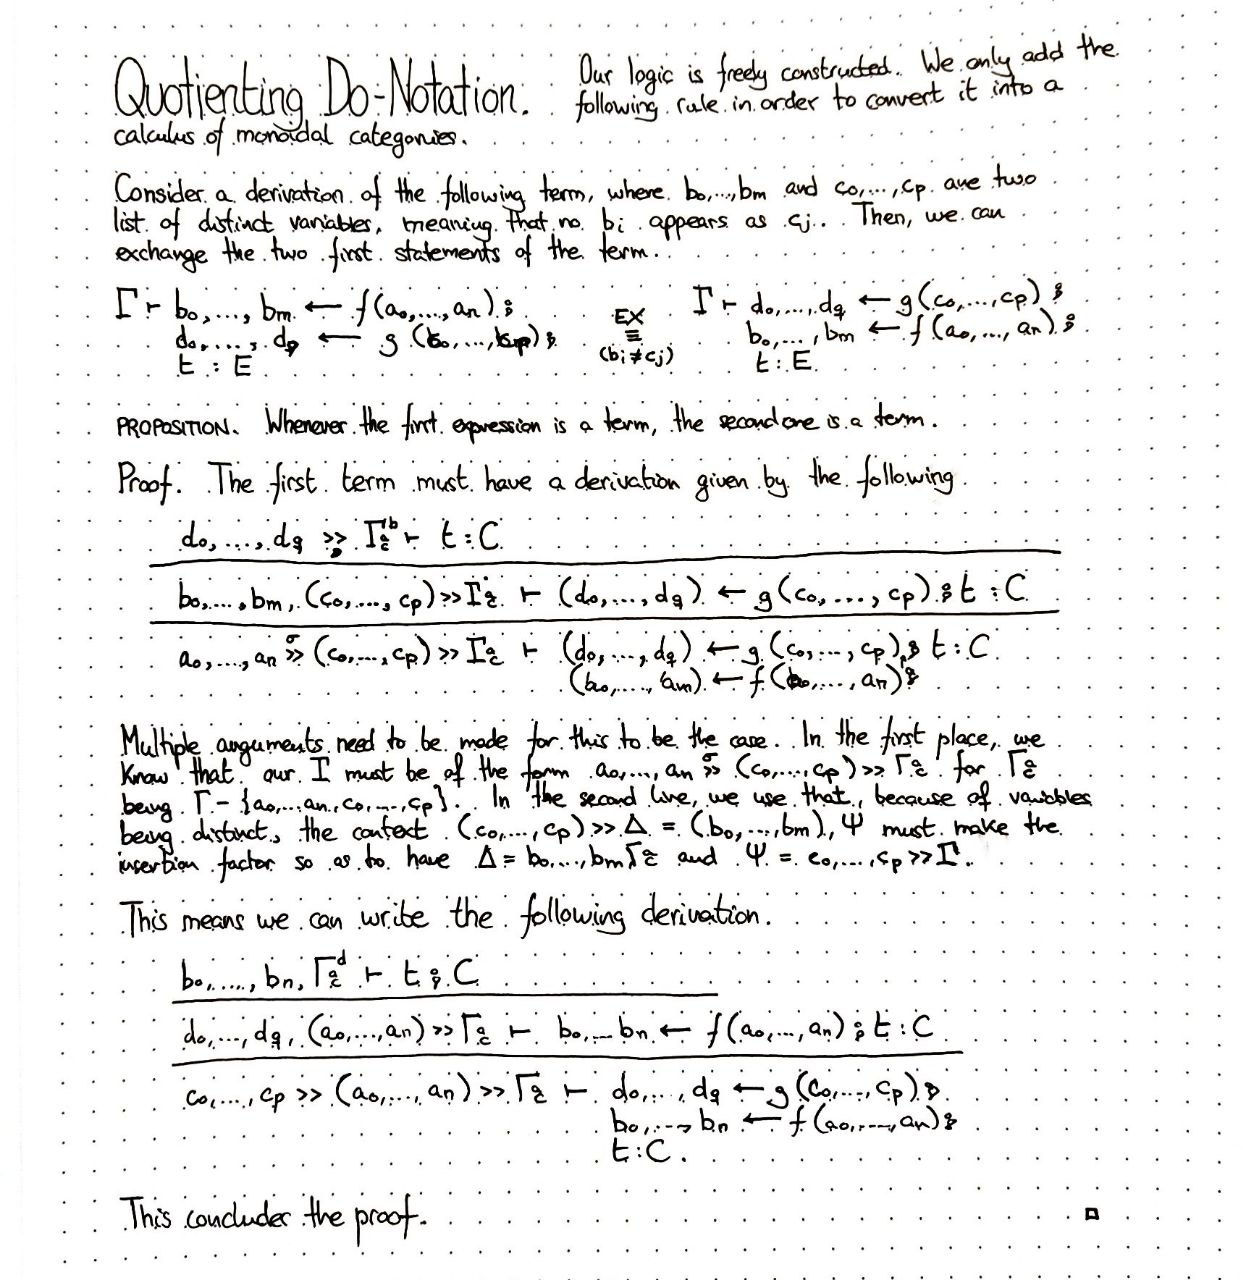 Quotienting Do-Notation. Our logic is freely constructed. We only add the
following rule in order to convert it into a
calculus of monoidal categories.
Consider a derivation of the following term, where b₀,...,bm and c₀,...,cp are two
list of distinct variables, meaning that no bi appears as cj. Then, we can
exchange the two first statements of the term.
Γ ⊢ b₀,...,bm ← f(a₀,...,an) ; EX Γ ⊢ d₀,...,dq ← g(c₀,...,cp) ;
d₀,...,dq ← g(c₀,...,cp) ; ≡ b₀,...,bm ← f(a₀,...,an) ;
t : E (bi≠cj) t : E
PROPOSITION. Whenever the first expression is a term, the second one is a term.
Proof. The first term must have a derivation given by the following.
d₀,...,dq ≫ Γ ⊢ t : C
b₀,...,bm, (c₀,...,cp) ≫ Γ ⊢ (d₀,...,dq) ← g(c₀,...,cp) ; t : C
a₀,...,an ≫ (c₀,...,cp) ≫ Γ ⊢ (d₀,...,dq) ← g(c₀,...,cp) ; t : C
(,..., am) ← f(,..., an) ;
Multiple arguments need to be made for this to be the case. In the first place, we
know that our Γ must be of the form a₀,...,an ≫ (c₀,...,cp) ≫ Γ for Γ
being Γ - {a₀,...an, c₀,...,cp}. In the second line, we use that, because of variables
being distinct, the context (c₀,...,cp) ≫ Δ = (b₀,...,bm), Ψ must make the
insertion factor so as to have Δ = b₀,...,bm Γ and Ψ = c₀,...,cp ≫ Γ.
This means we can write the following derivation.
b₀,...,bn, Γ ⊢ t ; C
d₀,...,dq, (a₀,...,an) ≫ Γ ⊢ b₀,...bn ← f(a₀,...,an) ; t : C
c₀,...,cp ≫ (a₀,...,an) ≫ Γ ⊢ d₀,...,dq ← g(c₀,...,cp) ;
b₀,...,bn ← f(a₀,...,an) ;
t : C.
This concludes the proof. □